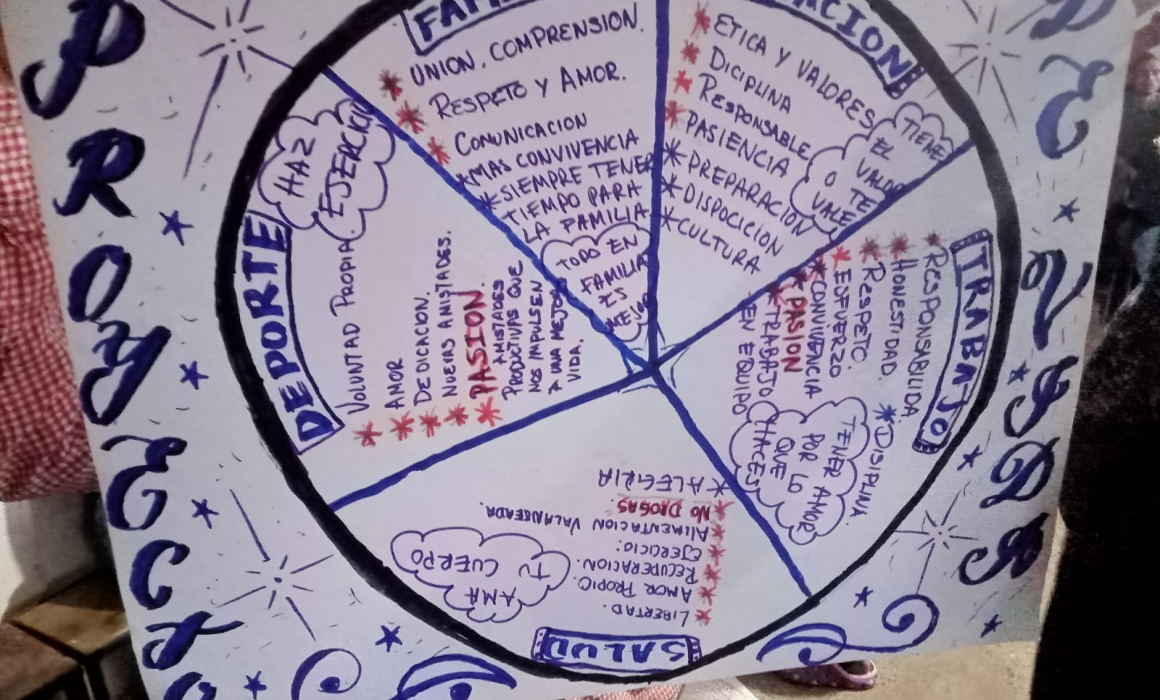 PROYECTO
DE
FAM
* UNION. COMPRENSION.
* RESPETO Y AMOR.
* COMUNICACION
* MAS CONVIVENCIA
* SIEMPRE TENER
TIEMPO PARA
LA FAMILIA
TODO EN
FAMILIA
ES
MEJOR
ACION
* ETICA Y VALORES
* DICIPLINA
* RESPONSABLE
* PASIENCIA
* PREPARACION
* DISPOCICION
* CULTURA
TIENE
EL
VALOR
O TE
VALE
TRABAJO
* RESPONSABILIDA.
* HONESTIDAD
* DISIPLINA.
* RESPETO.
* ESFUERZO
* CONVIVENCIA
* PASION
* TRABAJO
EN EQUIPO
TENER AMOR
POR LO
QUE
HACES
SALUD
* LIBERTAD.
* AMOR PROPIO.
* RECUPERACION.
* EJERCICIO.
* ALIMENTACION VALANSEADA.
* NO DROGAS.
* ALEGRIA
AMA
TU CUERPO
DEPORTE
HAZ
EJERCICIO
* VOLUNTAD PROPIA.
* AMOR
* DEDICACION.
* NUEVAS AMISTADES.
* PASION.
AMISTADES
PRODUCTIVAS QUE
NOS IMPULSEN
A UNA MEJOR
VIDA.